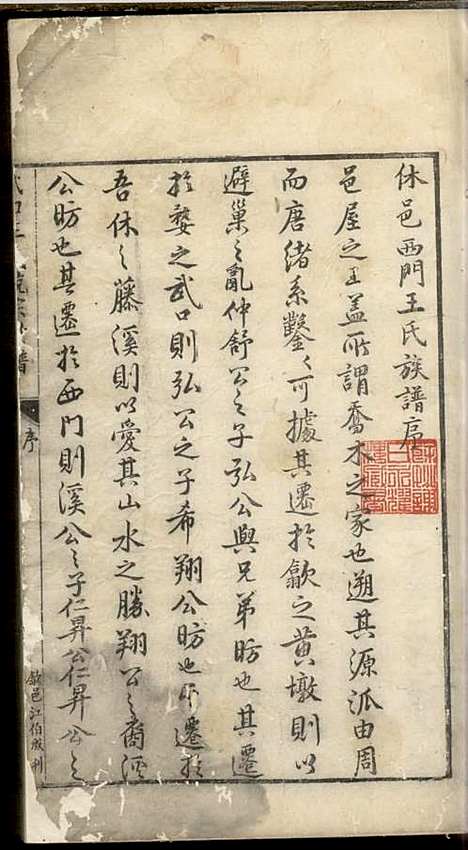 休邑西門王氏族譜序
邑屋之王盖所謂喬木之家也遡其源派由周
而唐緒系鑿〻可據其遷於歙之黄墩則以
避巢〻亂仲舒公〻子弘公與兄弟昉也其遷
於婺之武口則弘公之子希翔公昉也而遷於
吾休〻藤溪則以愛其山水之勝翔公〻裔
公昉也其遷於西門則溪公〻子仁昇公仁昇公〻
譜
序
歙邑江伯成刊